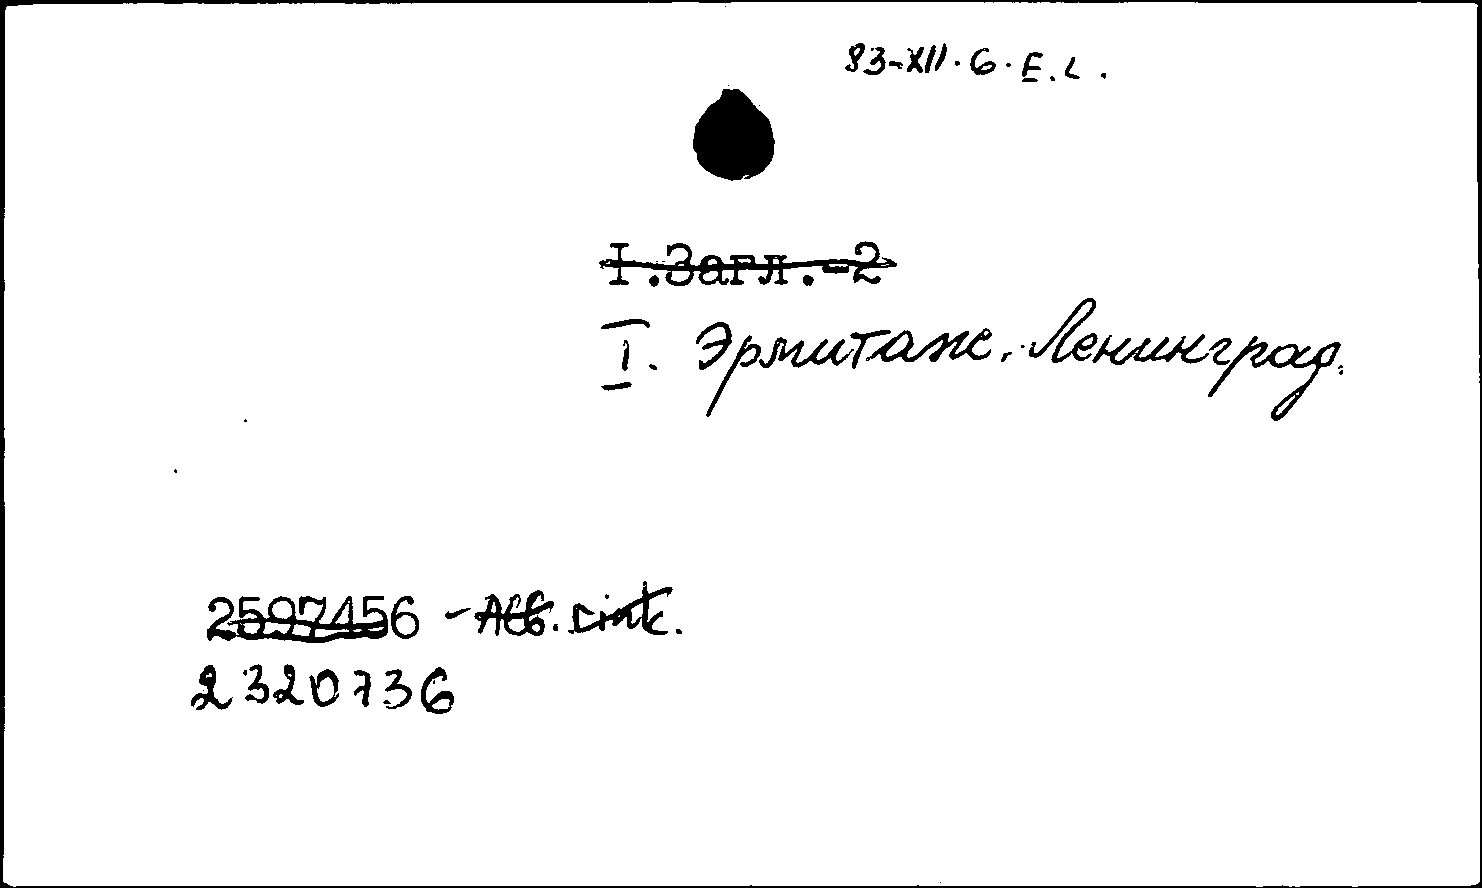 83-XII.6. E.L.
I.Загл.-2
I. Эрмитаж. Ленинград.
2597456
2320736